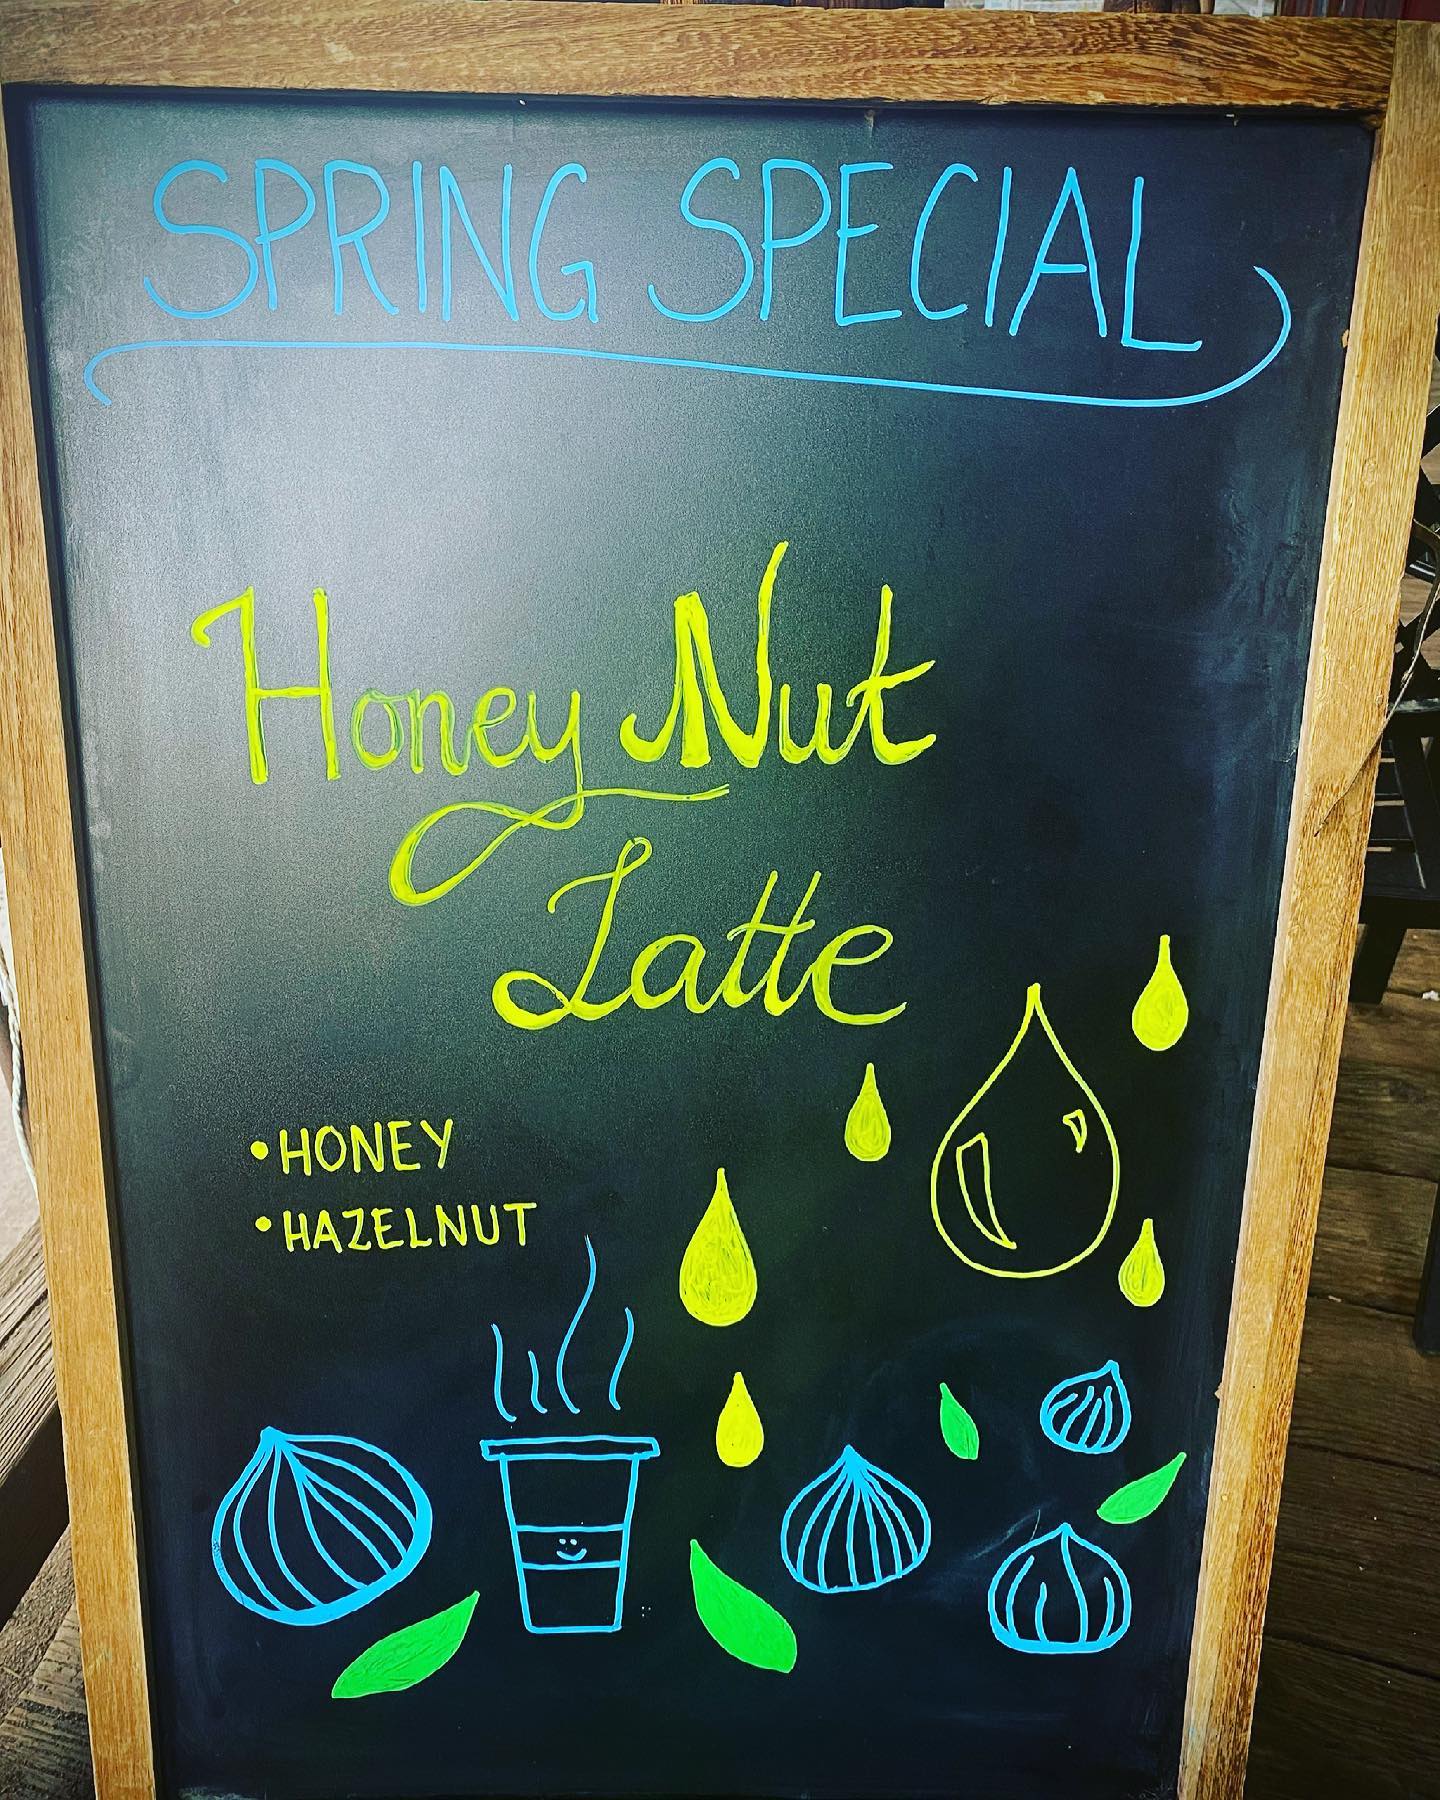 SPRING SPECIAL
Honey Nut
Latte
• HONEY
• HAZELNUT